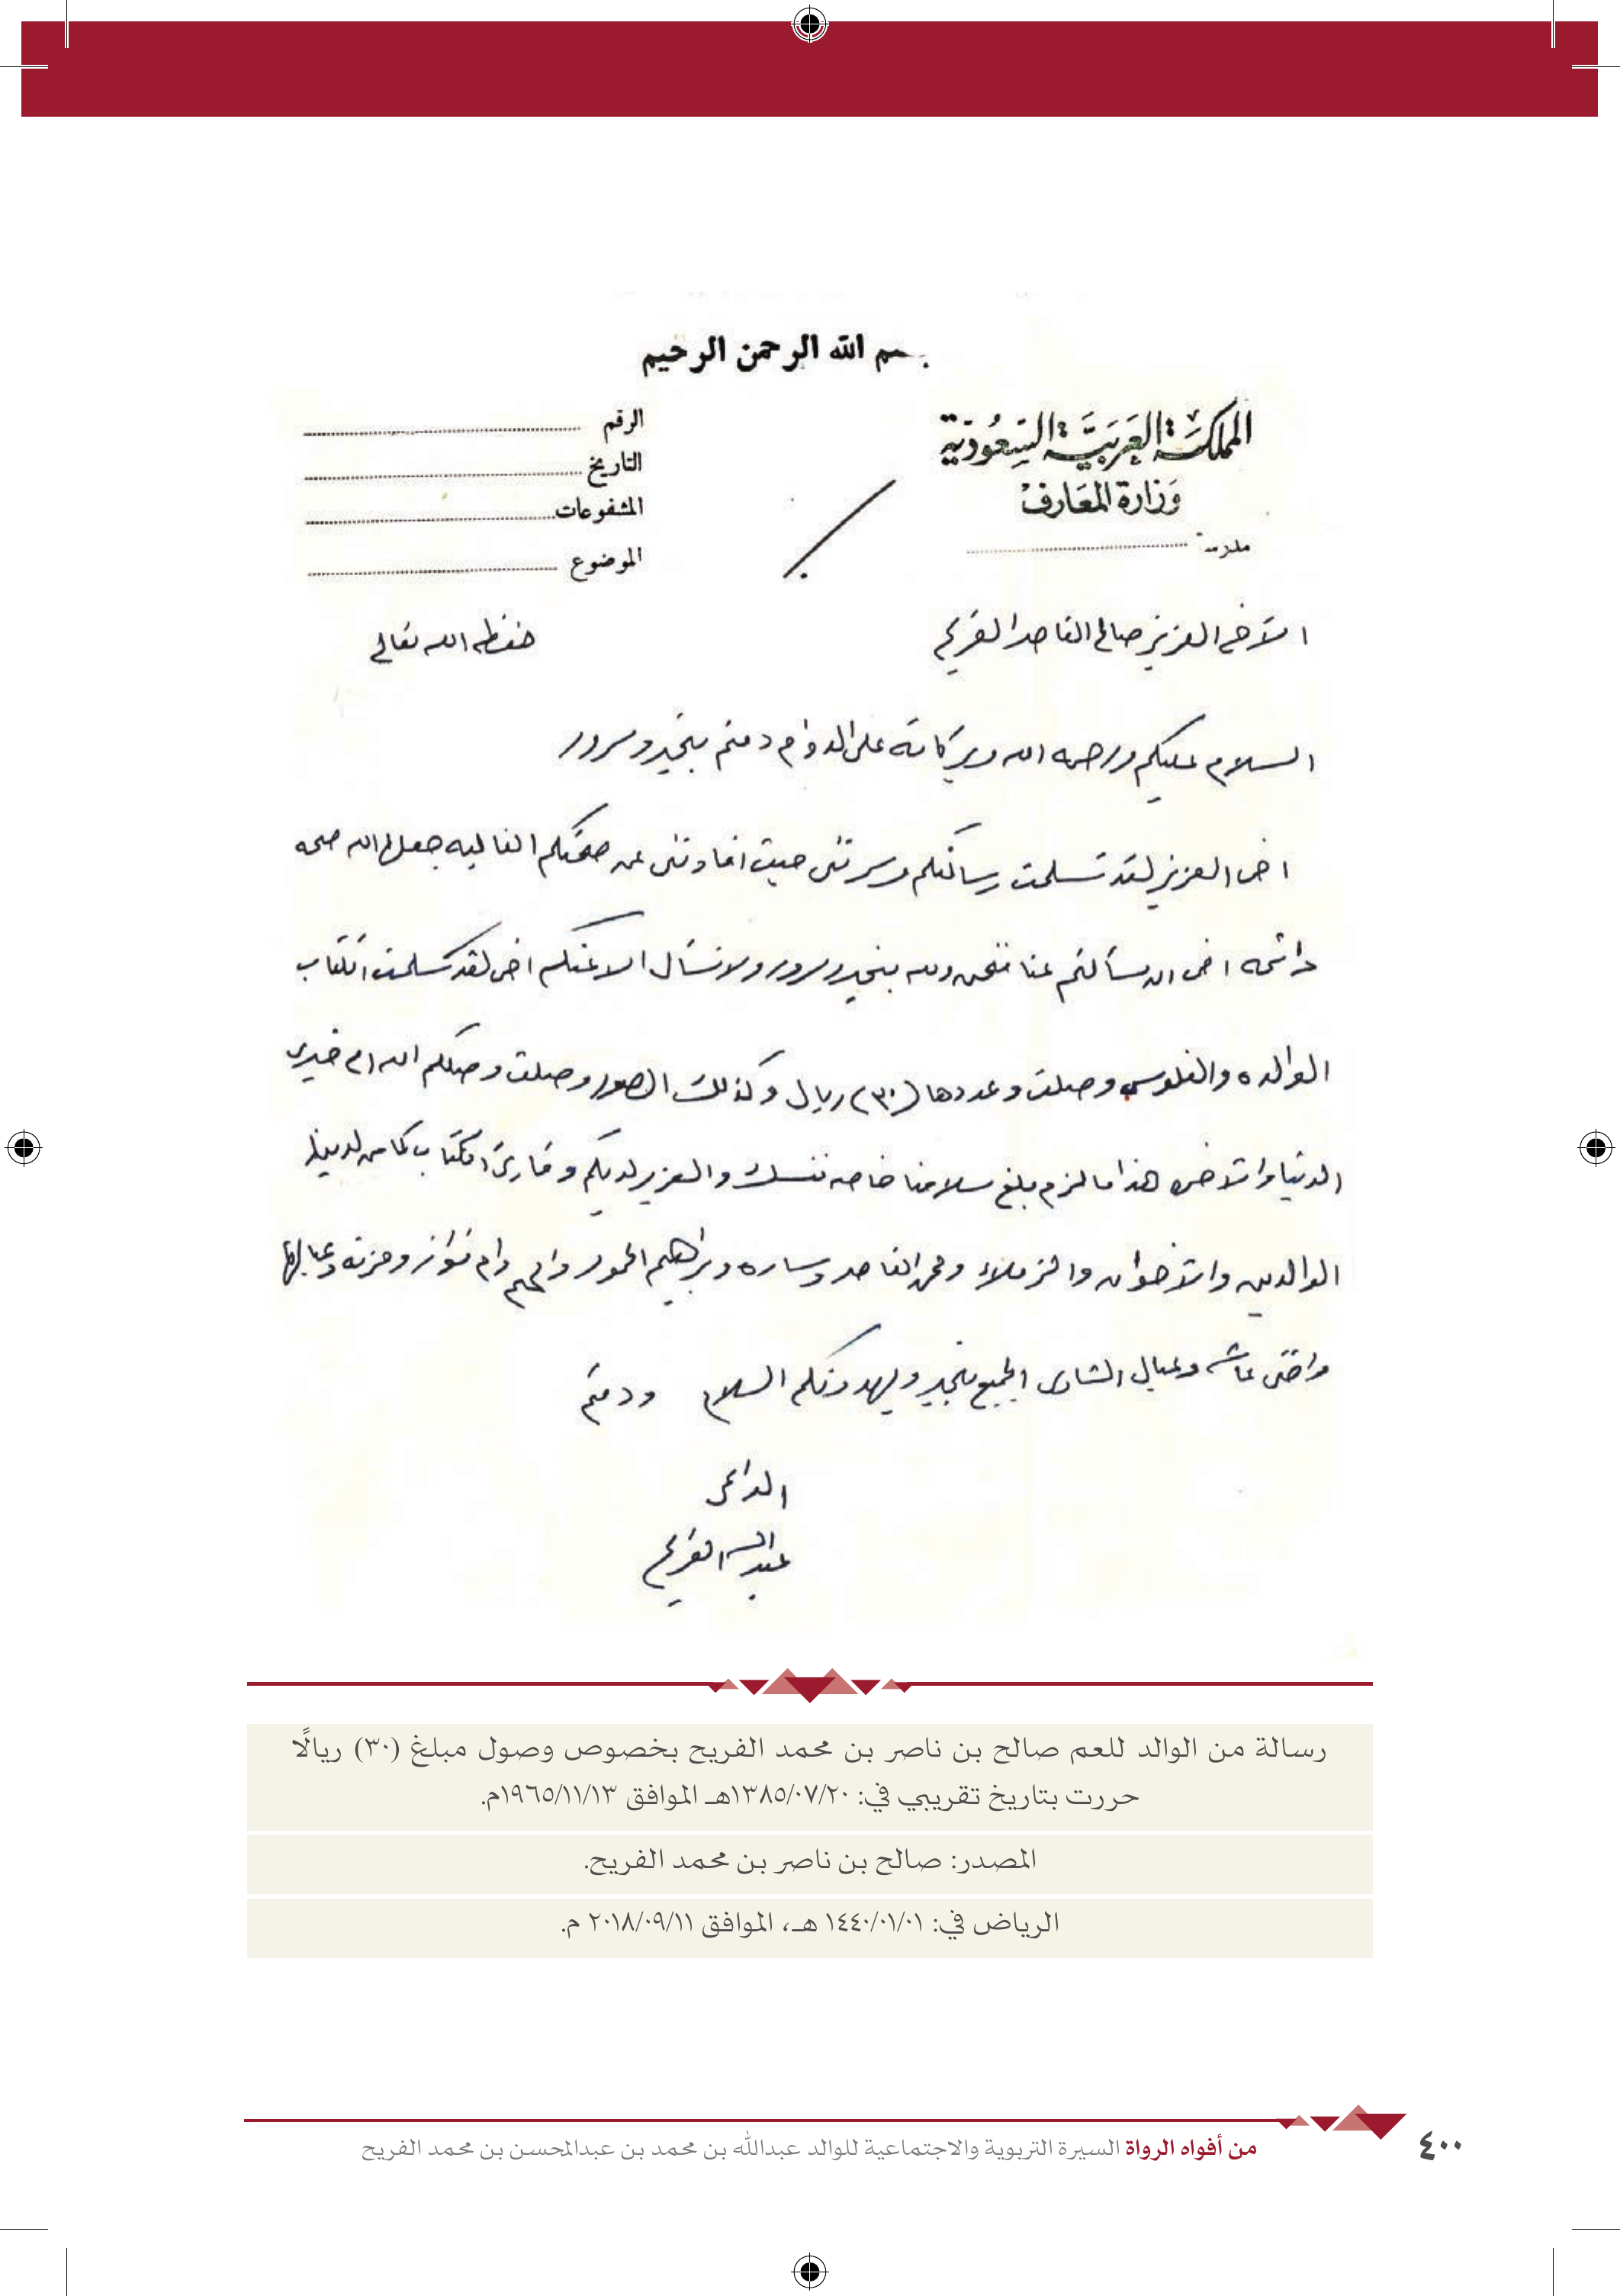 بسم الله الرحمن الرحيم
المملكة العربية السعودية
وزارة المعارف
مدرسة
الرقم
التاريخ
المشفوعات
الموضوع
الأخ العزيز صالح الناصر الفريح حفظه الله تعالى
السلام عليكم ورحمه الله وبركاته على الدوام دمتم بخير وسرور
اخي العزيز لقد تسلمت رسالتكم وسرتني حيث افادتني عن صحتكم الغاليه جعلها الله صحه
دائمه اخي ان سألتم عنا فنحن ولله بخير وسرور ولا نسأل الا عنكم اخي لقد تسلمت الكتاب
الوالده والفلوس وصلت وعددها (٣٠) ريال وكذلك الصور وصلت وصلكم الله خيري
الدنيا والأخره هذا مالزم بلغ سلامنا خاصه نفسك والعزيز لديكم وقارئ الكتاب كما من لدينا
الوالدين والأخوان والزملاء الناصر وساره وبراهيم الحمود وام فواز ومزنه وعيالها
واختي عائشه وعيال الشاوي الجميع بخير ويهدونكم السلام ودمتم
الداعي
عبدالله الفريح
رسالة من الوالد للعم صالح بن ناصر بن محمد الفريح بخصوص وصول مبلغ (٣٠) ريالًا
حررت بتاريخ تقريبي في: ١٣٨٥/٠٧/٢٠هـ الموافق ١٩٦٥/١١/١٣م.
المصدر: صالح بن ناصر بن محمد الفريح.
الرياض في: ١٤٤٠/٠١/٠١ هـ، الموافق ٢٠١٨/٠٩/١١ م.
من أفواه الرواة السيرة التربوية والاجتماعية للوالد عبدالله بن محمد بن عبدالمحسن بن محمد الفريح
٤٠٠